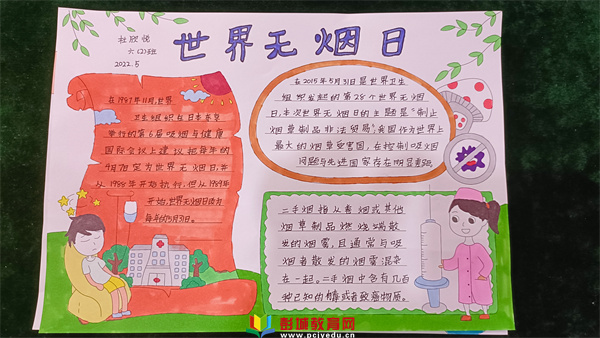 世界无烟日
杜欣悦
六(2)班
2022.5
在1987年11月,世界
卫生组织在日本东京
举行的第6届吸烟与健康
国际会议上建议把每年的
4月7日定为世界无烟日,并
从1988年开始执行,但从1989年
开始,世界无烟日改为
每年的5月31日。
在2015年5月31日是世界卫生
组织发起的第28个世界无烟
日,本次世界无烟日的主题是“制止
烟草制品非法贸易”我国作为世界上
最大的烟草受害国,在控制吸烟
问题与先进国家存在明显差距
二手烟指从卷烟或其他
烟草制品燃烧端散
发的烟雾,且通常与吸
烟者散发的烟雾混杂
在一起。二手烟中含有几百
种已知的有毒或者致癌物质。
彭城教育网
www.pcjyedu.cn